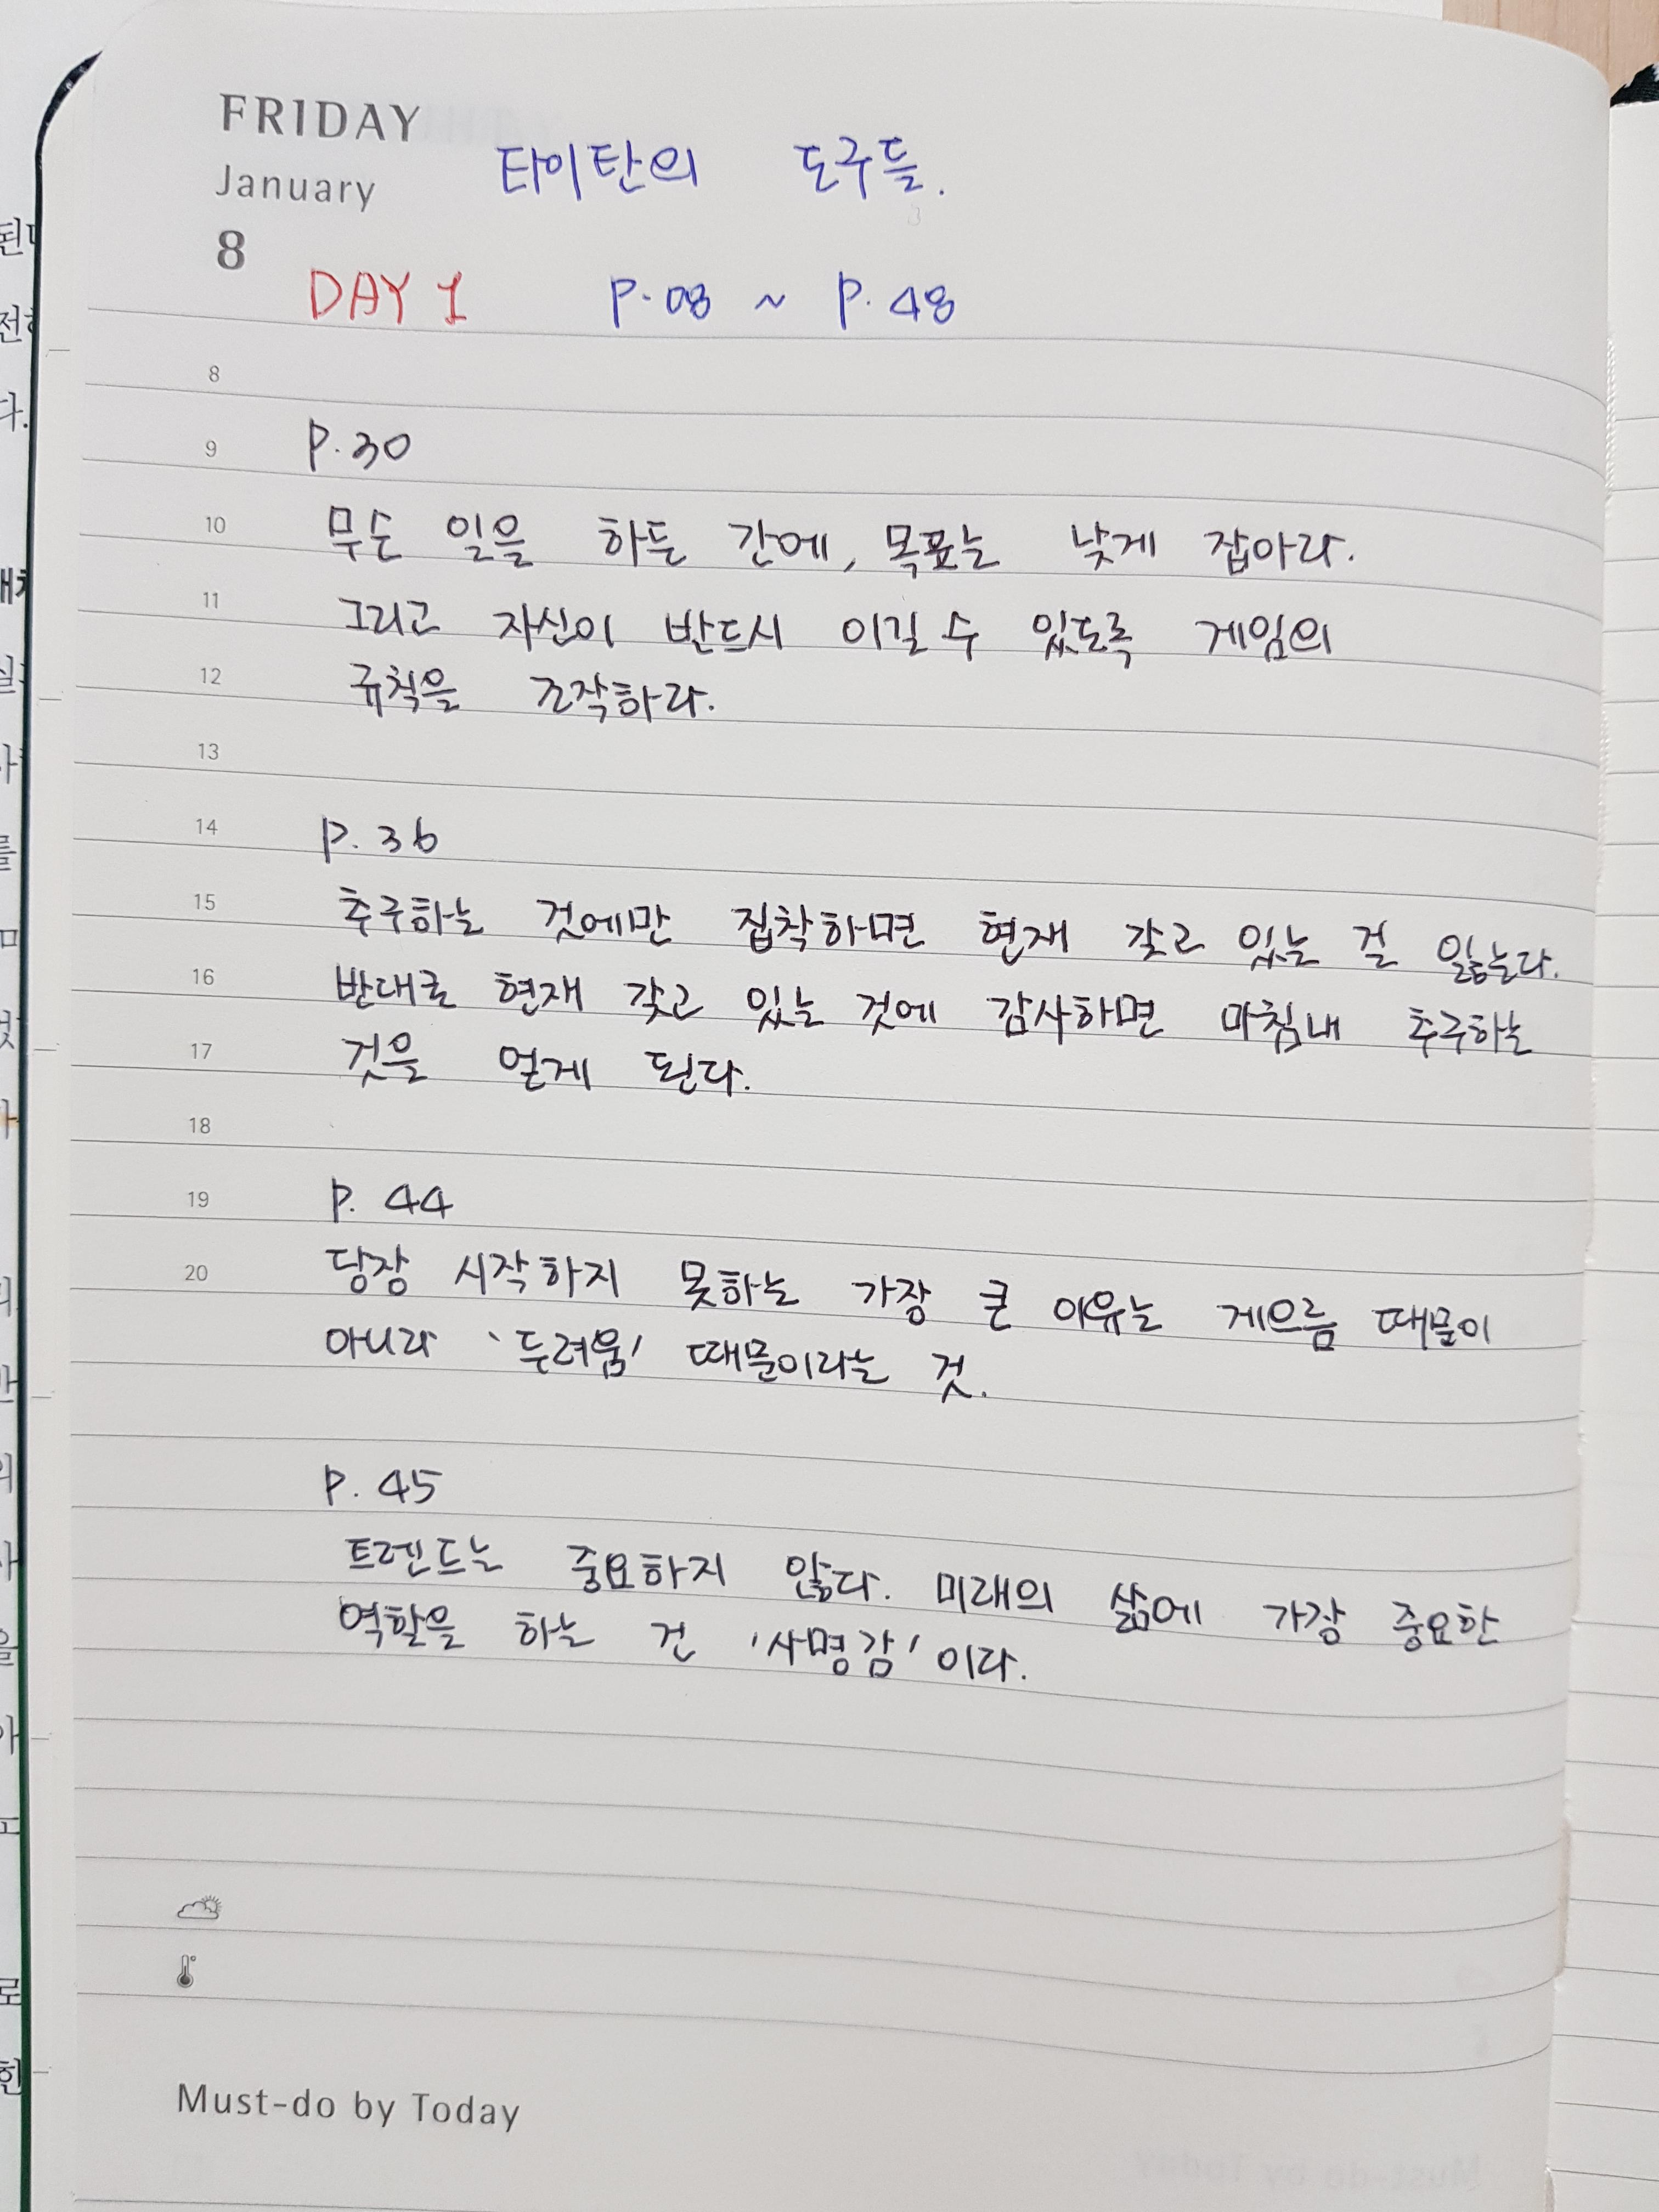 FRIDAY
January
8
타이탄의 도구들.
DAY 1 P.08 ~ P.48
8
9 P.30
10 무슨 일을 하든 간에, 목표는 낮게 잡아라.
11 그리고 자신이 반드시 이길 수 있도록 게임의
12 규칙을 조작하라.
13
14 P.36
15 추구하는 것에만 집착하면 현재 갖고 있는 걸 잃는다.
16 반대로 현재 갖고 있는 것에 감사하면 마침내 추구하는
17 것을 얻게 된다.
18
19 P. 44
20 당장 시작하지 못하는 가장 큰 이유는 게으름 때문이
아니라 '두려움' 때문이라는 것.
P. 45
트렌드는 중요하지 않다. 미래의 삶에 가장 중요한
역할을 하는 건 '사명감'이다.
Must-do by Today